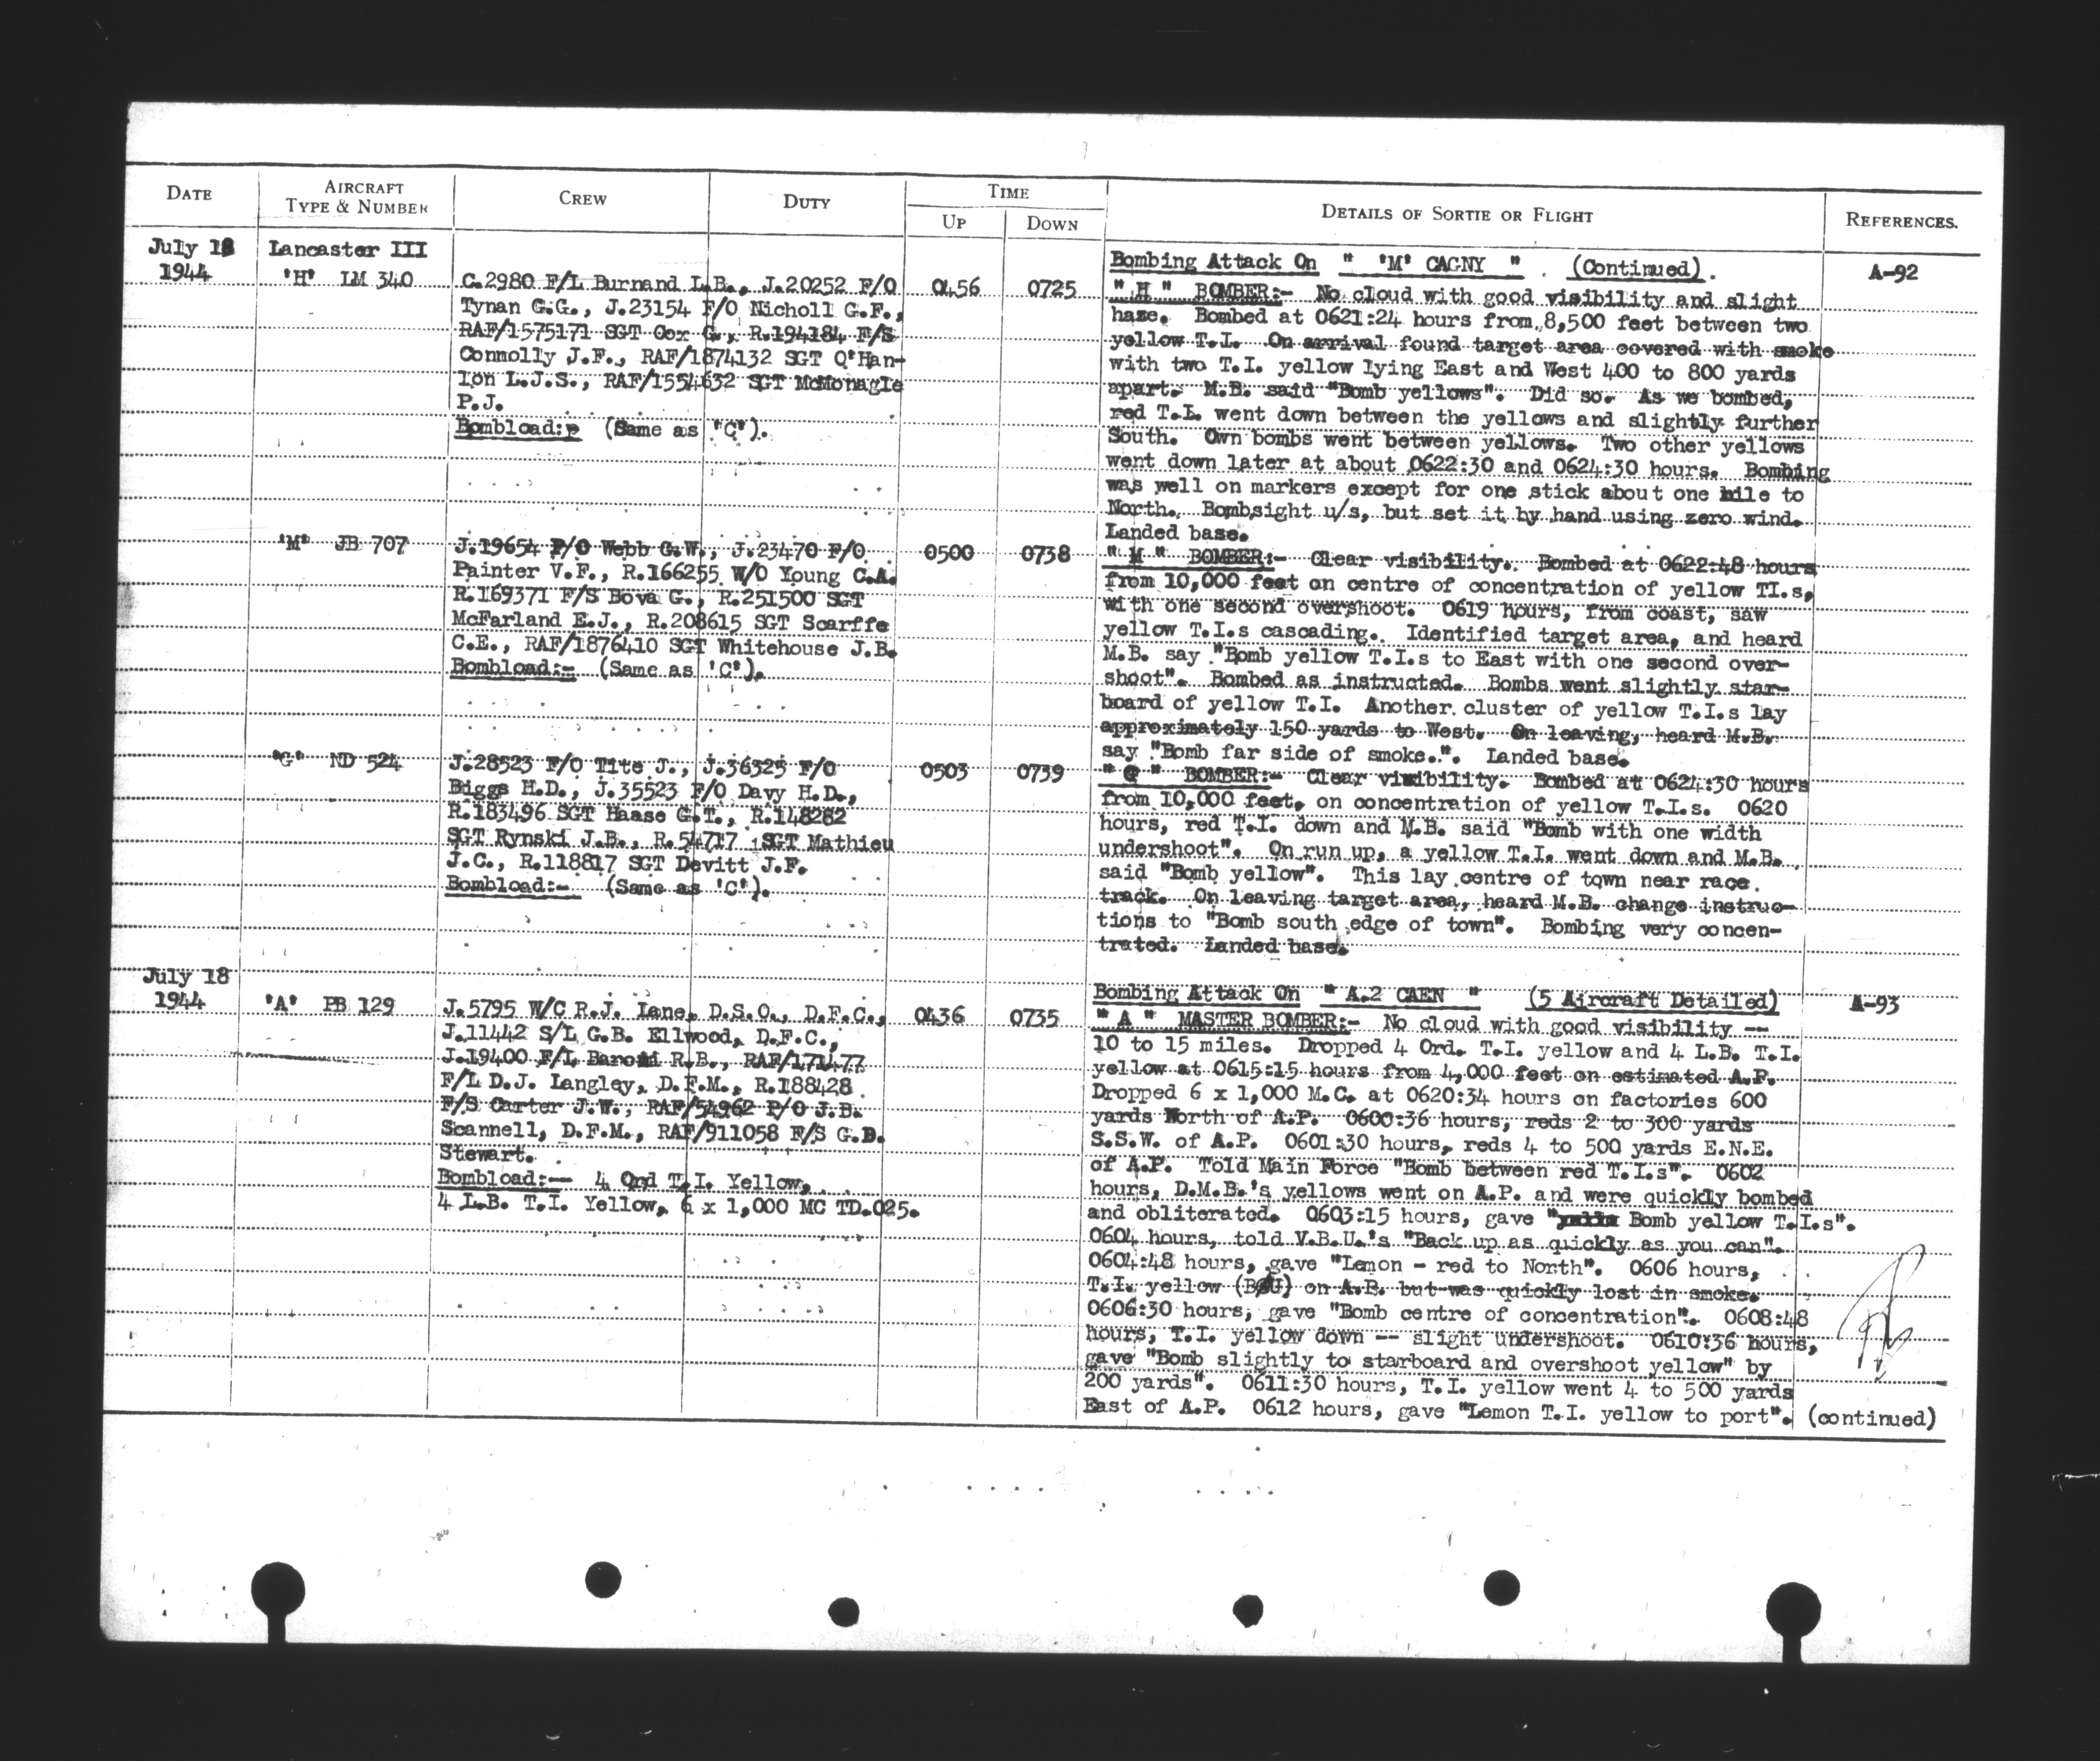 DATE
AIRCRAFT
TYPE & NUMBER
CREW
DUTY
TIME
UP
DOWN
DETAILS OF SORTIE OR FLIGHT
REFERENCES.
July 18
1944
Lancaster III
"H" LM 340
C.2980 F/L Burnand L.B., J.20252 F/O
Tynan G.G., J.23154 F/O Nicholl G.F.,
RAF/1575171 SGT Cox G., R.194184 F/S
Connolly J.F., RAF/1874132 SGT O'Han-
lon L.J.S., RAF/1554632 SGT McMonagle
P.J.
Bombload:- (Same as 'C').
0456
0725
Bombing Attack On " 'M' CAGNY " . (Continued).
A-92
" H " BOMBER:- No cloud with good visibility and slight
haze. Bombed at 0621:24 hours from 8,500 feet between two
yellow T.I. On arrival found target area covered with smoke
with two T.I. yellow lying East and West 400 to 800 yards
apart. M.B. said "Bomb yellows". Did so. As we bombed,
red T.I. went down between the yellows and slightly further
South. Own bombs went between yellows. Two other yellows
went down later at about 0622:30 and 0624:30 hours. Bombing
was well on markers except for one stick about one mile to
North. Bombsight u/s, but set it by hand using zero wind.
Landed base.
"M" JB 707
J.19654 F/O Webb G.W., J.23470 F/O
Painter V.F., R.166255 W/O Young C.A.
R.169371 F/S Bova G., R.251500 SGT
McFarland E.J., R.208615 SGT Scarffe
C.E., RAF/1876410 SGT Whitehouse J.B.
Bombload:- (Same as 'C').
0500
0738
" M " BOMBER:- Clear visibility. Bombed at 0622:48 hours
from 10,000 feet on centre of concentration of yellow TI.s,
with one second overshoot. 0619 hours, from coast, saw
yellow T.I.s cascading. Identified target area, and heard
M.B. say "Bomb yellow T.I.s to East with one second over-
shoot". Bombed as instructed. Bombs went slightly star-
board of yellow T.I. Another cluster of yellow T.I.s lay
approximately 150 yards to West. On leaving, heard M.B.
say "Bomb far side of smoke.". Landed base.
"G" ND 524
J.28523 F/O Tite J., J.36325 F/O
Biggs H.D., J.35523 F/O Davy H.D.,
R.183496 SGT Haase G.T., R.148282
SGT Rynski J.B., R.54717 SGT Mathieu
J.C., R.118817 SGT Devitt J.F.
Bombload:- (Same as 'C').
0503
0739
" G " BOMBER:- Clear visibility. Bombed at 0624:30 hours
from 10,000 feet, on concentration of yellow T.I.s. 0620
hours, red T.I. down and M.B. said "Bomb with one width
undershoot". On run up, a yellow T.I. went down and M.B.
said "Bomb yellow". This lay centre of town near race
track. On leaving target area, heard M.B. change instruc-
tions to "Bomb south edge of town". Bombing very concen-
trated. Landed base.
July 18
1944
"A" PB 129
J.5795 W/C R.J. Lane, D.S.O., D.F.C.,
J.11442 S/L G.B. Ellwood, D.F.C.,
J.19400 F/L R.B., RAF/171477
F/L D.J. Langley, D.F.M., R.188428
F/S Carter J.W., RAF/54962 P/O J.B.
Scannell, D.F.M., RAF/911058 F/S G.D.
Stewart.
Bombload:-- 4 Ord T.I. Yellow,
4 L.B. T.I. Yellow, 6 x 1,000 MC TD.025.
0436
0735
Bombing Attack On " A.2 CAEN " (5 Aircraft Detailed)
A-93
" A " MASTER BOMBER:- No cloud with good visibility --
10 to 15 miles. Dropped 4 Ord. T.I. yellow and 4 L.B. T.I.
yellow at 0615:15 hours from 4,000 feet on estimated A.P.
Dropped 6 x 1,000 M.C. at 0620:34 hours on factories 600
yards North of A.P. 0600:36 hours, reds 2 to 300 yards
S.S.W. of A.P. 0601:30 hours, reds 4 to 500 yards E.N.E.
of A.P. Told Main Force "Bomb between red T.I.s". 0602
hours, D.M.B.'s yellows went on A.P. and were quickly bombed
and obliterated. 0603:15 hours, gave " Bomb yellow T.I.s".
0604 hours, told V.B.U.'s "Back up as quickly as you can".
0604:48 hours, gave "Lemon - red to North". 0606 hours,
T.I. yellow (BU) on A.P. but was quickly lost in smoke.
0606:30 hours, gave "Bomb centre of concentration". 0608:48
hours, T.I. yellow down -- slight undershoot. 0610:36 hours,
gave "Bomb slightly to starboard and overshoot yellow" by
200 yards". 0611:30 hours, T.I. yellow went 4 to 500 yards
East of A.P. 0612 hours, gave "Lemon T.I. yellow to port". (continued)